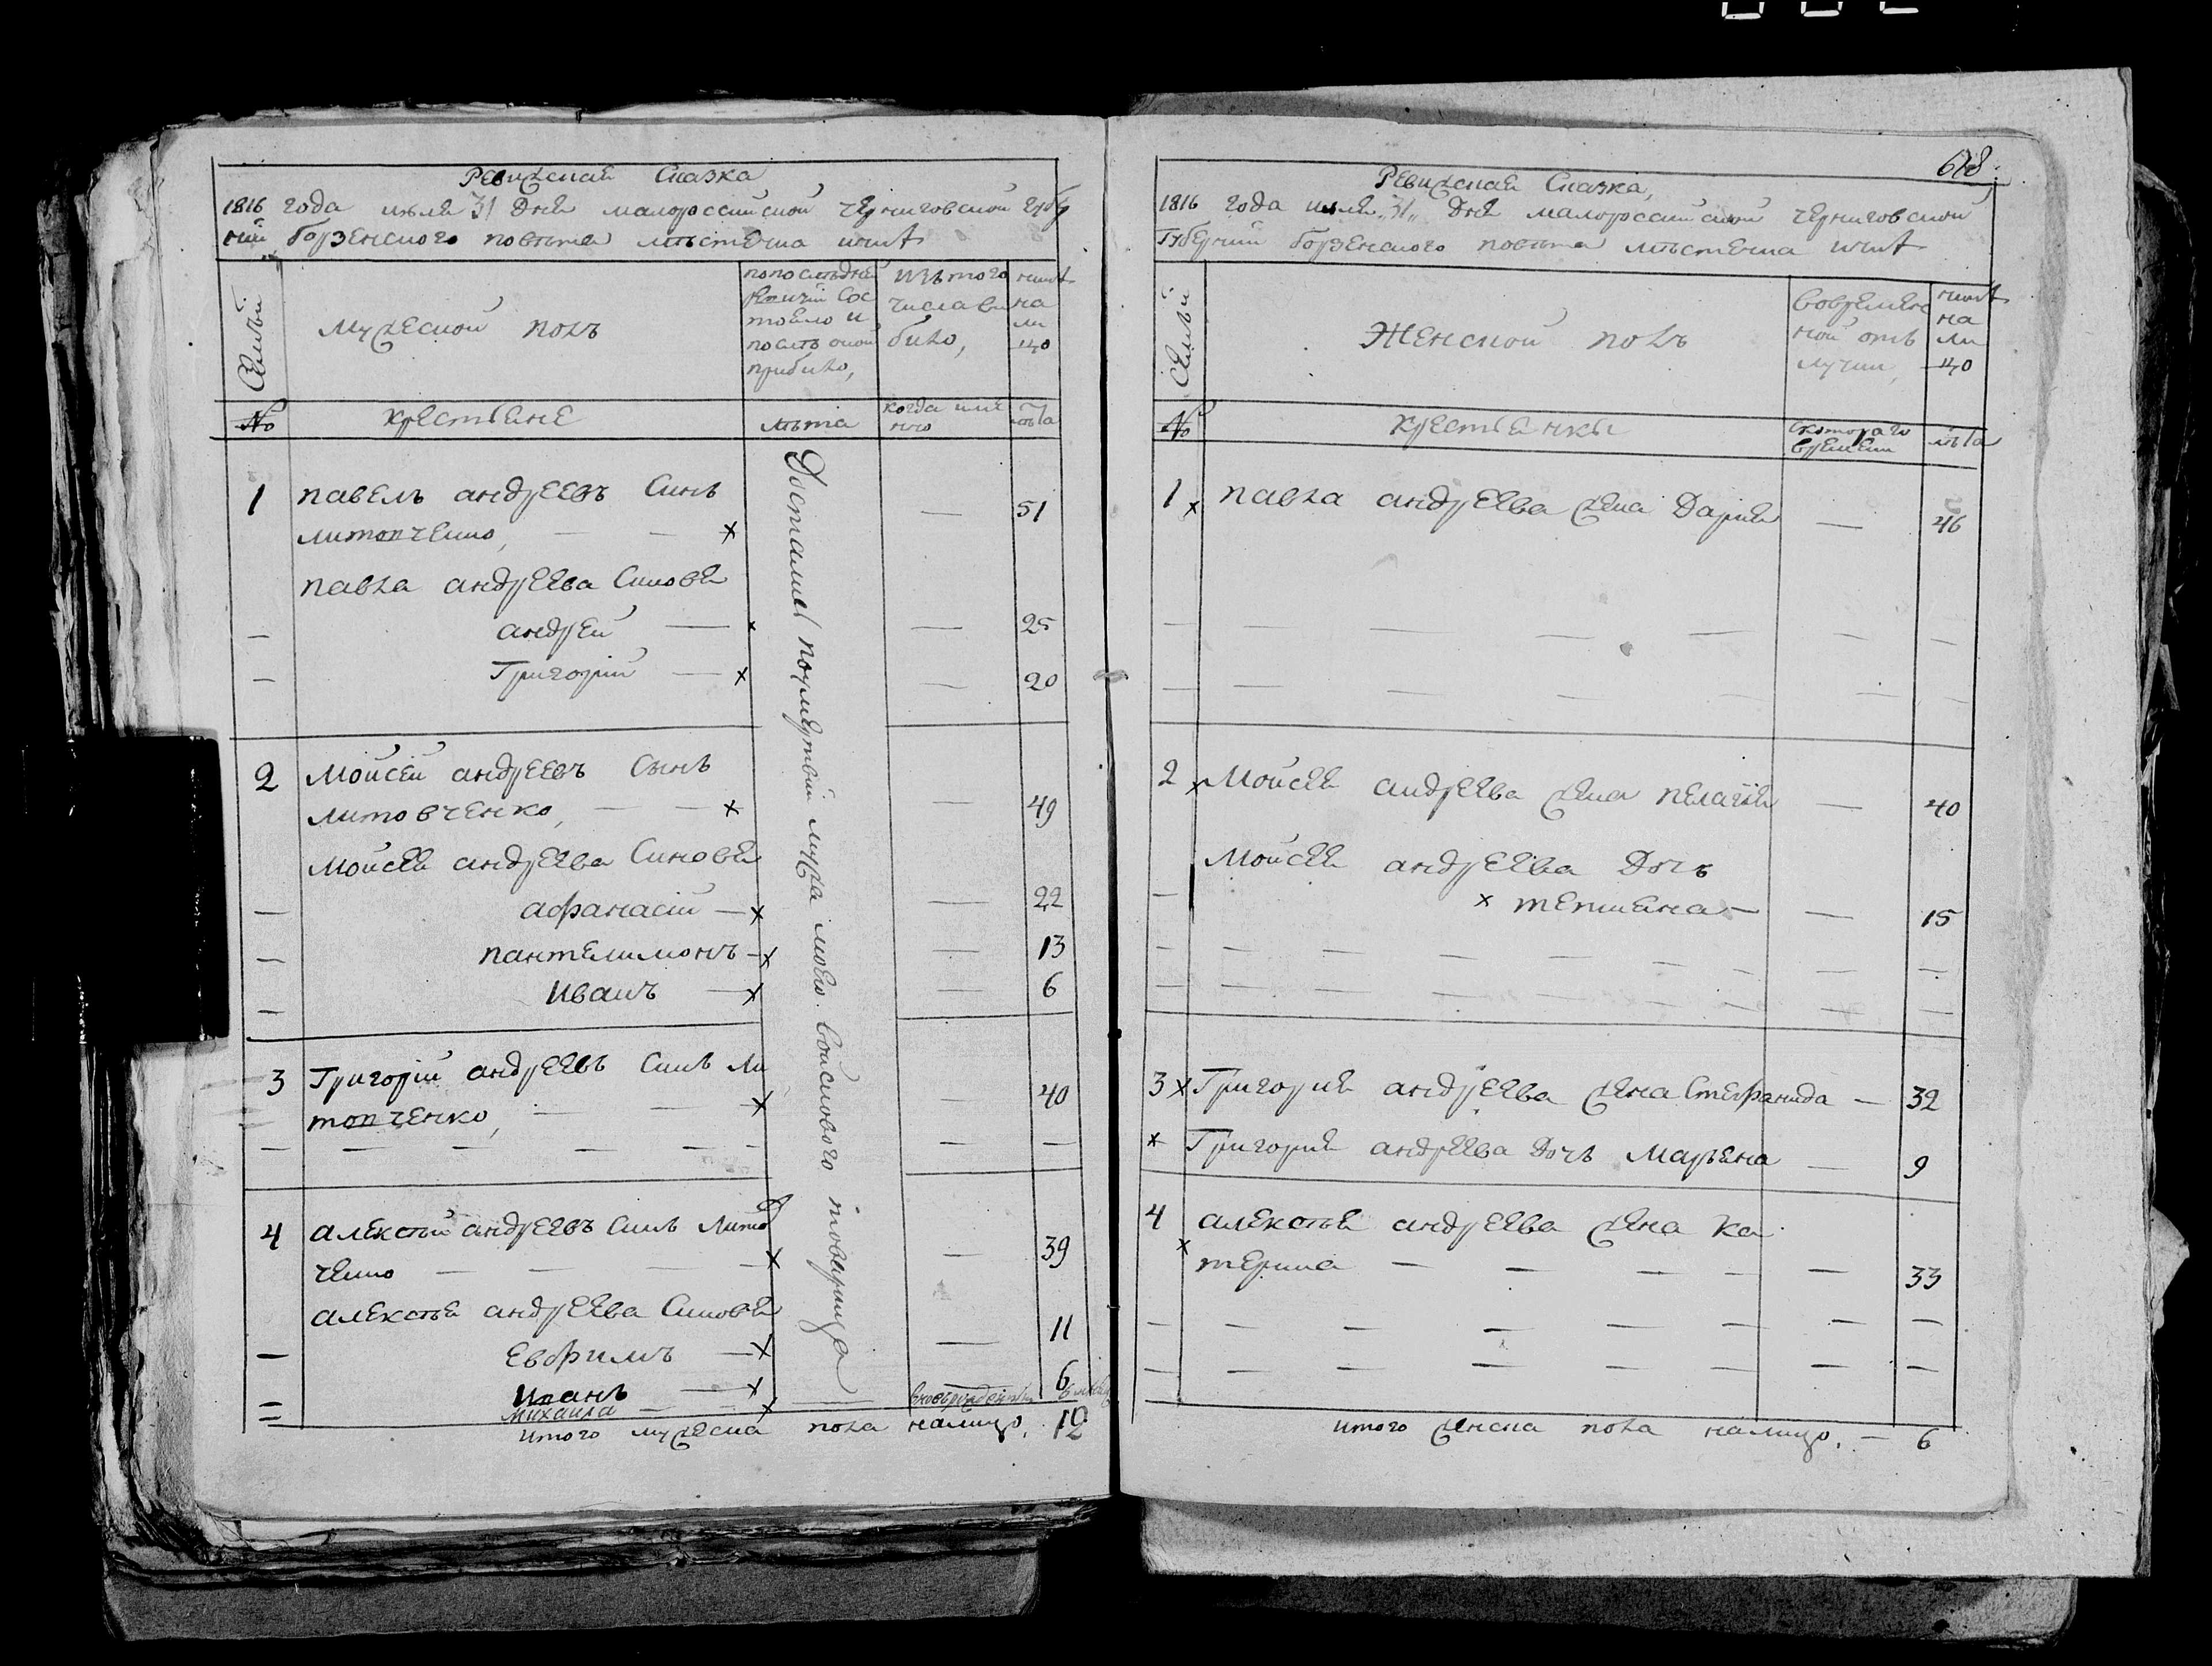 Ревизская Сказка
1816 года июля 31 дня малороссийской черниговской губе
рнии борзенского повета местечка ични
Семьи
мужеской полъ
по последней
ревизии сос
тояло и
после оной
прибыло,
изъ того
числа вы
было,
ныне
на
ли
цо
№
крестьяне
лета
когда име
нно
лета
1 павелъ андреевъ Синъ 51
литовченко,
павла андреева Синовя
андрей 25
Григорий 20
2 Мойсей андреевъ Сынъ
литовченко, 49
Мойсея андреева Синовя
афанасий 22
пантелимонъ 13
Иванъ 6
3 Григорий андреевъ Синъ Ли 40
товченко,
4 алексей андреевъ Синъ Литов 39
ченко
алексея андреева Синовя
Евфимъ 11
Иванъ 6
Михаила
Итого мужеска пола налицо, 12
Досталися по смерти мужа моего войскового товарища
68
Ревизская Сказка,
1816 года июля „31„ дня малороссийской черниговской
Губернии борзенского повета местечка ични
Семьи
Женской полъ
во времен
ной отъ
лучки,
ныне
на
ли
цо
№
крестьянки
с которого
времени
лета
1 павла андреева жена Дария 46
2 Мойсея андреева жена пелагия 40
Мойсея андреева Дочъ
тетияна 15
3 Григория андреева жена Стефанида 32
Григория андреева Дочъ Марьяна 9
4 алексея андреева жена Ка
терина 33
итого женска пола налицо, 6